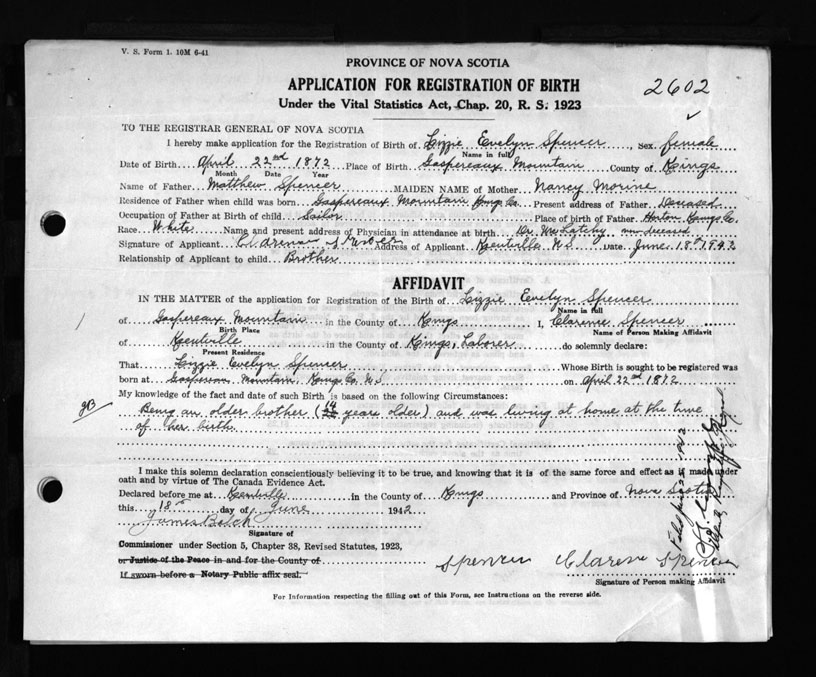 V. S. Form 1. 10M 6-41
PROVINCE OF NOVA SCOTIA
APPLICATION FOR REGISTRATION OF BIRTH
2602
Under the Vital Statistics Act, Chap. 20, R. S. 1923
TO THE REGISTRAR GENERAL OF NOVA SCOTIA
I hereby make application for the Registration of Birth of Lizzie Evelyn Spencer, Sex female
Name in full
Date of Birth April 22nd 1872 Place of Birth Gaspereaux Mountain County of Kings
Month Date Year
Name of Father Matthew Spencer MAIDEN NAME of Mother Nancy Morine
Residence of Father when child was born Gaspereaux Mountain Kings Co. Present address of Father Deceased
Occupation of Father at Birth of child Sailor Place of birth of Father Horton Kings Co.
Race White Name and present address of Physician in attendance at birth Dr. McLatchy now deceased
Signature of Applicant Address of Applicant Kentville N.S. Date June 18th 1942
Relationship of Applicant to child Brother
AFFIDAVIT
IN THE MATTER of the application for Registration of the Birth of Lizzie Evelyn Spencer
Name in full
of Gaspereaux Mountain in the County of Kings I, Clarence Spencer
Birth Place Name of Person Making Affidavit
of Kentville in the County of Kings, Laborer do solemnly declare:
Present Residence
That Lizzie Evelyn Spencer Whose Birth is sought to be registered was
born at Gaspereau Mountain, Kings Co. N.S. on April 22nd 1872
My knowledge of the fact and date of such Birth is based on the following Circumstances:
Being an older brother (14 years older) and was living at home at the time
of her birth
I make this solemn declaration conscientiously believing it to be true, and knowing that it is of the same force and effect as if made under
oath and by virtue of The Canada Evidence Act.
Declared before me at Kentville in the County of Kings and Province of Nova Scotia
this 18th day of June 1942
James Bolch
Signature of
Commissioner under Section 5, Chapter 38, Revised Statutes, 1923,
or Justice of the Peace in and for the County of
Spencer Clarence Spencer
If sworn before a Notary Public affix seal.
Signature of Person making Affidavit
For Information respecting the filling out of this Form, see Instructions on the reverse side.